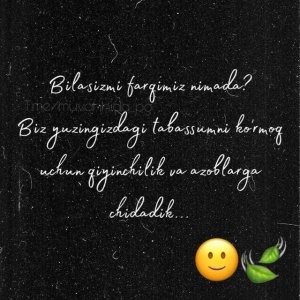 Bilasizmi farqimiz nimada?
Biz yuzingizdagi tabassumni ko'rmoq
uchun qiyinchilik va azoblarga
chidadik...